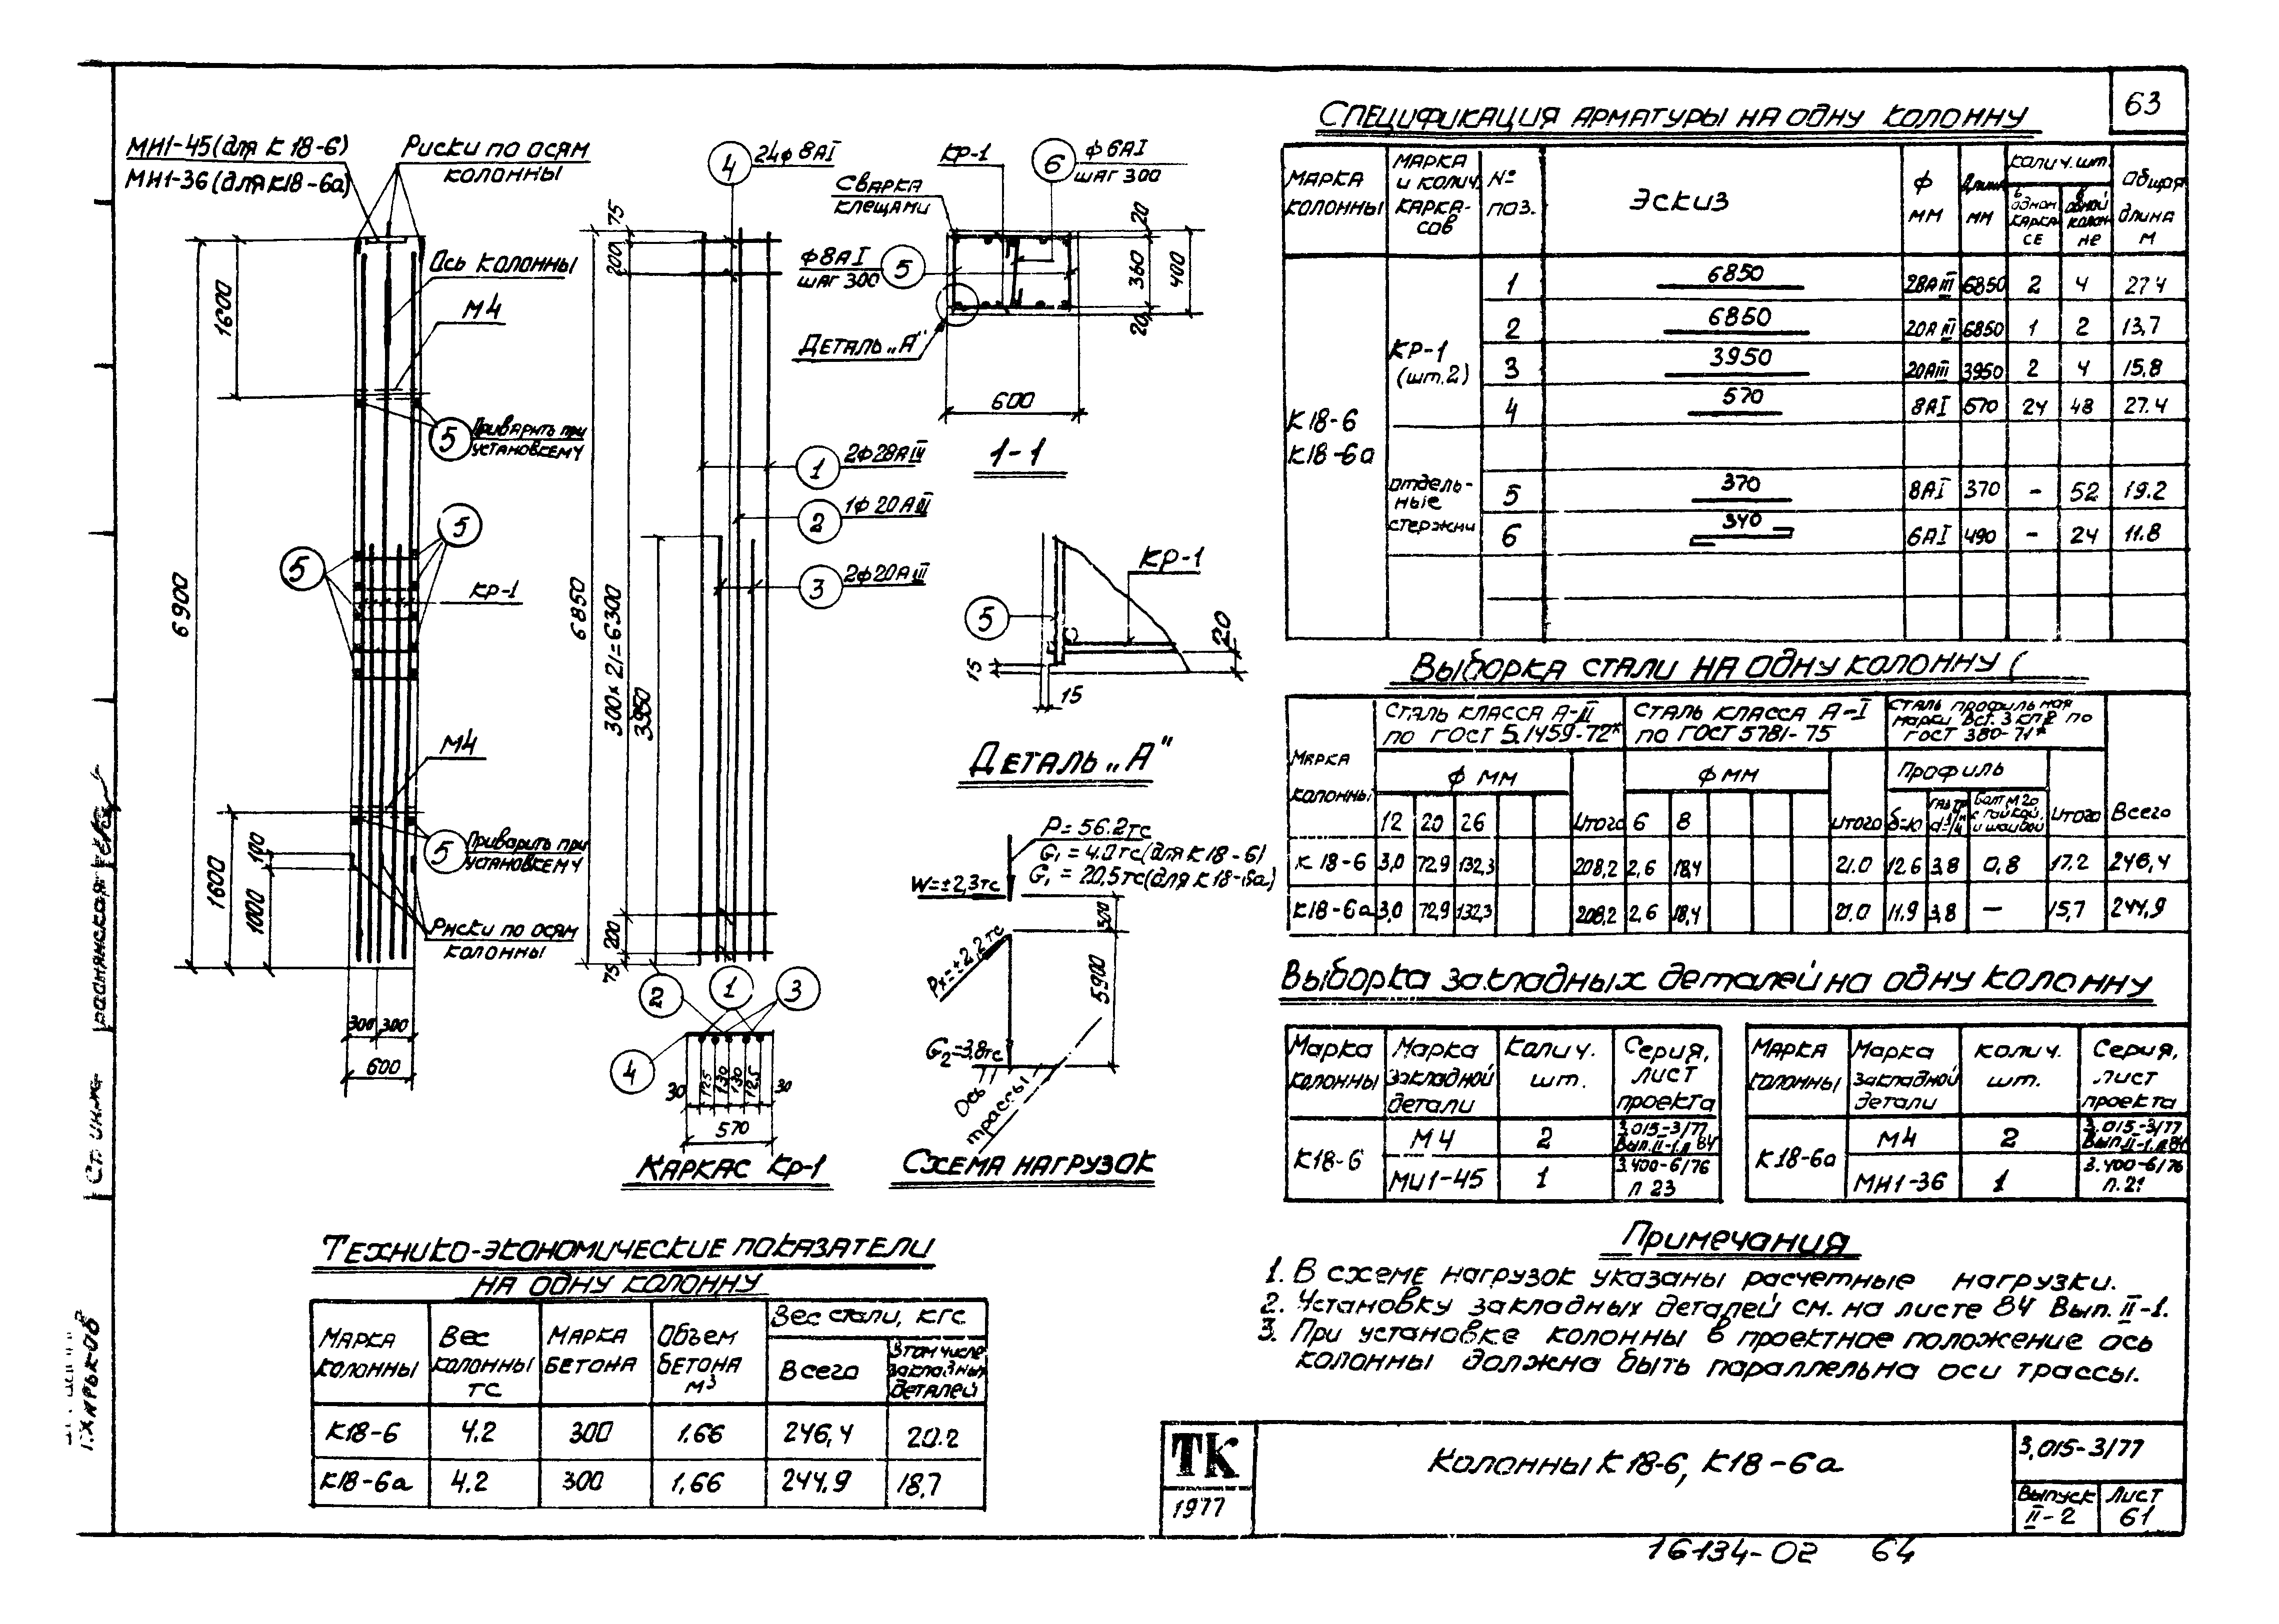 63
МН1-45 (для К 18-6)
МН1-36 (для К18-6а)
Риски по осям
колонны
Ось колонны
М4
1600
6900
5
Приварить при
установке М4
5
5
КР-1
М4
5
Приварить при
установке М4
100
1600
1000
Риски по осям
колонны
300
300
600
4
24ф8АI
75
200
6850
300х21=6300
3950
1
2ф28АIII
2
1ф20АIII
3
2ф20АIII
200
75
2
1
3
4
30
125
130
130
125
30
570
Каркас Кр-1
КР-1
6
ф6АI
шаг 300
Сварка
клещами
ф8АI
шаг 300
5
Деталь „А"
20
360
20
400
600
1-1
КР-1
5
20
15
15
Деталь „А"
Р=56.2тс
G₁=4.0тс (для К18-6)
G₁=20,5тс (для К18-6а)
W=±2,3тс
Рх=±2,2тс
5900
G₂=3,8тс
Ось
трассы
Схема нагрузок
Спецификация арматуры на одну колонну
Марка колонны
Марка и колич. каркасов
№ поз.
Эскиз
ф мм
Длина мм
Колич. шт.
в одном каркасе
в одной колонне
Общая длина м
К18-6
К18-6а
КР-1
(шт.2)
1 6850 28АIII 6850 2 4 27.4
2 6850 20АIII 6850 1 2 13,7
3 3950 20АIII 3950 2 4 15,8
4 570 8АI 570 24 48 27.4
отдель-
ные
стержни
5 370 8АI 370 - 52 19.2
6 340 6АI 490 - 24 11.8
Выборка стали на одну колонну
Марка колонны
Сталь класса А-III
по ГОСТ 5.1459-72*
Сталь класса А-I
по ГОСТ 5781-75
Сталь профильная
марки Вст.3кп2 по
ГОСТ 380-71*
ф мм
ф мм
Профиль
Всего
12 20 26 Итого 6 8 Итого δ=10
Болт М20
с гайкой
и шайбой
Итого
К 18-6 3,0 72,9 132,3 208,2 2,6 18,4 21.0 12.6 3,8 0,8 17.2 246,4
К18-6а 3,0 72,9 132,3 208,2 2,6 18,4 21.0 11.9 3,8 — 15,7 244,9
Выборка закладных деталей на одну колонну
Марка колонны
Марка закладной детали
Колич. шт.
Серия, лист проекта
К18-6
М4 2 3.015-3/77 Вып.II-1.л 84
МН1-45 1 3.400-6/76 л 23
Марка колонны
Марка закладной детали
колич. шт.
Серия, лист проекта
К18-6а
М4 2 3.015-3/77 Вып.II-1.л 84
МН1-36 1 3.400-6/76 л.21
Примечания
1. В схеме нагрузок указаны расчетные нагрузки.
2. Установку закладных деталей см. на листе 84 Вып. II-1.
3. При установке колонны в проектное положение ось
колонны должна быть параллельна оси трассы.
Технико-экономические показатели
на одну колонну
Марка колонны
Вес колонны тс
Марка бетона
Объем бетона м³
Вес стали, кгс
Всего
В том числе закладных деталей
К18-6 4.2 300 1.66 246,4 20.2
К18-6а 4.2 300 1,66 244,9 18,7
ТК
1977
Колонны К 18-6, К18-6а
3.015-3/77
Выпуск
II-2
Лист
61
16134-02 64
Ст. инж.
г.Харьков